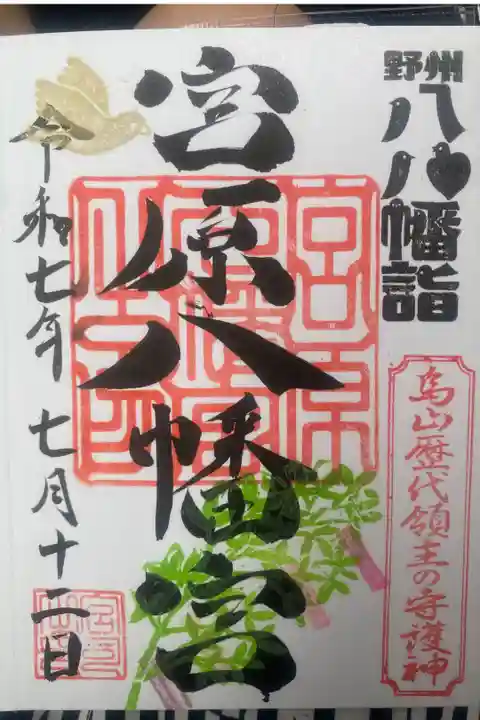 野州
八八幡詣
烏山歴代領主の守護神
宮原八幡宮
令和七年 七月十二日